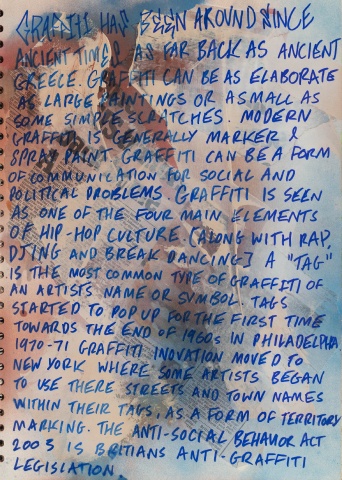 GRAFFITI HAS BEEN AROUND SINCE
ANCIENT TIMES. AS FAR BACK AS ANCIENT
GREECE. GRAFFITI CAN BE AS ELABORATE
AS LARGE PAINTINGS OR AS SMALL AS
SOME SIMPLE SCRATCHES. MODERN
GRAFFITI IS GENERALLY MARKER &
SPRAY PAINT. GRAFFITI CAN BE A FORM
OF COMMUNICATION FOR SOCIAL AND
POLITICAL PROBLEMS. GRAFFITI IS SEEN
AS ONE OF THE FOUR MAIN ELEMENTS
OF HIP-HOP CULTURE. (ALONG WITH RAP,
DJING AND BREAK DANCING] A "TAG"
IS THE MOST COMMON TYPE OF GRAFFITI OF
AN ARTISTS NAME OR SYMBOL. TAGS
STARTED TO POP UP FOR THE FIRST TIME
TOWARDS THE END OF 1960s IN PHILADELPHIA
1970-71 GRAFFITI INOVATION MOVED TO
NEW YORK WHERE SOME ARTISTS BEGAN
TO USE THERE STREETS AND TOWN NAMES
WITHIN THEIR TAGS. AS A FORM OF TERRITORY
MARKING. THE ANTI-SOCIAL BEHAVIOR ACT
2003 IS BRITIANS ANTI-GRAFFITI
LEGISLATION.